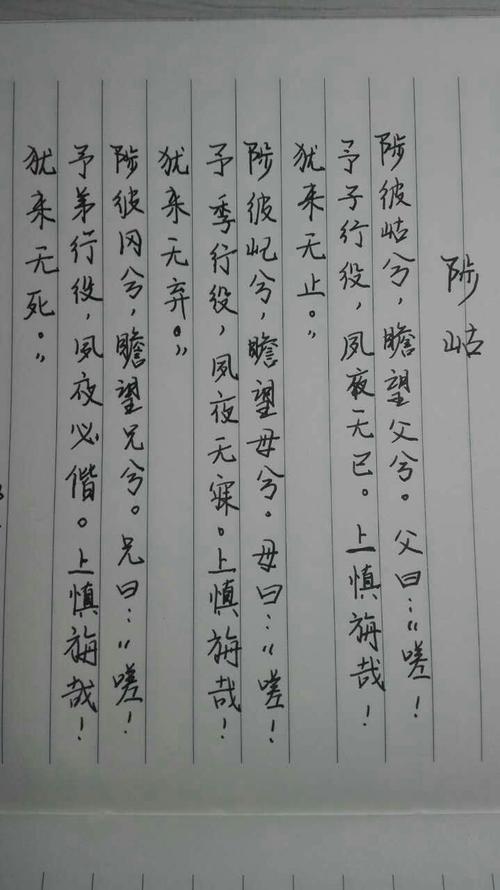 陟岵
陟彼岵兮，瞻望父兮。父曰：“嗟！
予子行役，夙夜无已。上慎旃哉！
犹来无止。”
陟彼屺兮，瞻望母兮。母曰：“嗟！
予季行役，夙夜无寐。上慎旃哉！
犹来无弃。”
陟彼冈兮，瞻望兄兮。兄曰：“嗟！
予弟行役，夙夜必偕。上慎旃哉！
犹来无死。”